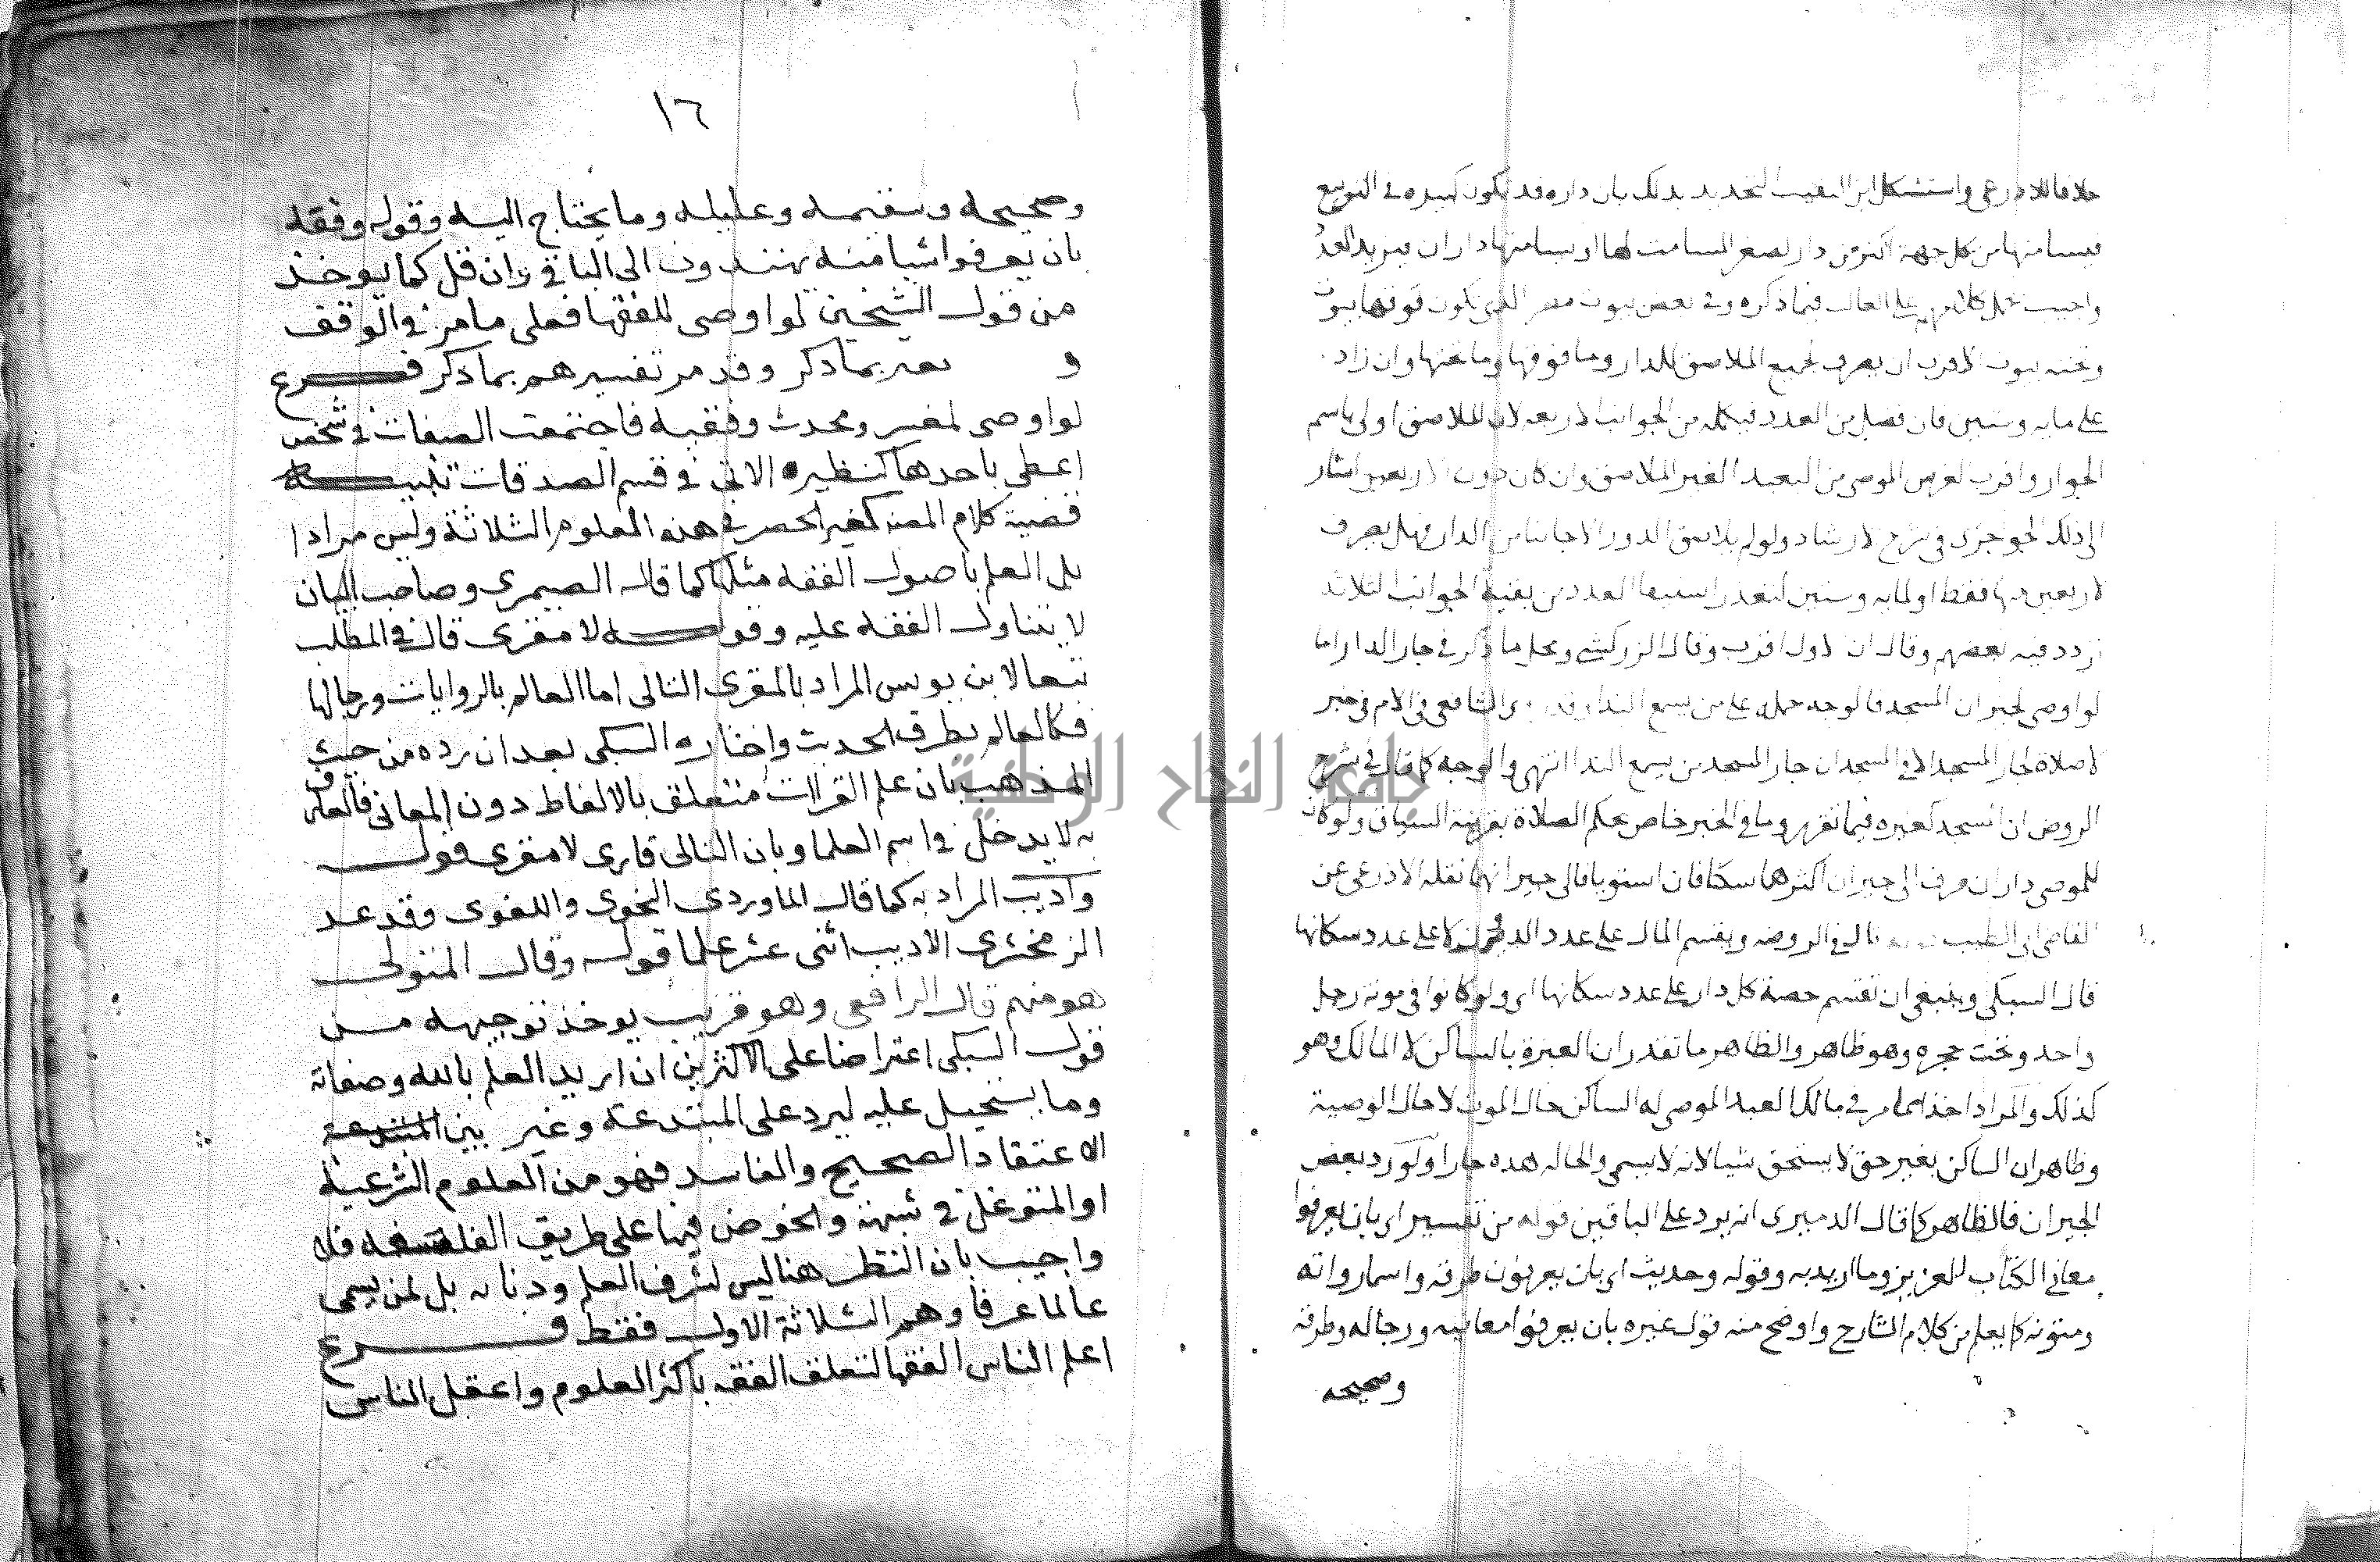 خلافا للاذرعي واستشكل ابن النقيب التحديد بذلك بان داره قد تكون كبيره في التربيع
فيسامتها من كل جهة اكثر من دار لصغر المسامت لها او يسامتها داران فيزيد العدد
واجيب بحمل كلامهم على الغالب فيما ذكره وفي بعض بيوت مصر التي تكون فوقها بيوت
وتحته بيوت الاقرب ان يصرف لجميع الملاصق للدار وما فوقها وما تحتها وان زاد
على مايه وستين فان فضل من العدد فيكمله من الجوانب الاربعه لان الملاصق اولى باسم
الجوار واقرب لغرض الموصي من البعيد الغير الملاصق وان كان دون الاربعين اشار
الى ذلك الجوجري في شرح الارشاد ولو لم يلاصق الدور الا جانبا من الدار فهل يصرف
لاربعين منها فقط او لمايه وستين لتعذر استيفا العدد من بقية الجوانب الثلاث
تردد فيه بعضهم وقال ان الاول اقرب وقال الزركشي ومحل ما ذكر في جار الدار اما
لو اوصى لجيران المسجد فالوجه حمله على من يسمع الندا وقد روى الشافعي في الام في خبر
لا صلاة لجار المسجد الا في المسجد ان جار المسجد من يسمع الندا انتهى والوجه كما قال في شرح
الروض ان المسجد كغيره فيما تقرر وما في الخبر خاص بحكم الصلاة بقرينة السياق ولو كان
للموصي داران صرف الى جيران اكثرهما سكنا فان استويا فالى جيرانهما نقله الاذرعي عن
القاضي ابي الطيب قال في الروضه ويقسم المال على عدد الدور لا على عدد سكانها
قال السبكي وينبغي ان تقسم حصة كل دار على عدد سكانها اي ولو كانوا في مونة رجل
واحد وتحت حجره وهو ظاهر والظاهر ما تقدر ان العبرة بالساكن لا المالك وهو
كذلك والمراد اخذا مما مر في مالك العبد الموصى له الساكن حال الموت لا حال الوصية
وظاهر ان الساكن بغير حق لا يستحق شيا لانه لا يسمى والحاله هذه جارا ولو رد بعض
الجيران فالظاهر كما قال الدميري انه يرد على الباقين قوله من تفسير اي بان يعرفوا
معاني الكتاب العزيز وما اريد به وقوله وحديث اي بان يعرفون طرقه واسما رواته
ومتونه كما يعلم من كلام الشارح واوضح منه قول غيره بان يعرفوا معانيه ورجاله وطرقه
وصحيحه
١٦
وصحيحه وسقيمه وعليله وما يحتاج اليه وقوله وفقه
بان يعرفوا شيا منه يهتدون الى الباقي وان قل كما يوخذ
من قول الشيخين لو اوصى للفقها فعلى ما مر في الوقف
و بما ذكر وقد مر تفسيرهم بما ذكر فرع
لو اوصى لمفسر ومحدث وفقيه فاجتمعت الصفات في شخص
اعطى باحدها كنظيره الاتي في قسم الصدقات تنبيه
قضية كلام المصنف كغيره الحصر في هذه العلوم الثلاثة وليس مرادا
بل العلم باصول الفقه مثلها كما قاله الصيمري وصاحب البيان
لا يتناول الفقه عليه وقوله لا مقرى قال في المطلب
تبعا لابن يونس المراد بالمقرى التالى اما العالم بالروايات ورجالها
فكالعالم بطرق الحديث واختاره السبكي بعد ان رده من حيث
المذهب بان علم القراات متعلق بالالفاظ دون المعاني فالعارف
به لا يدخل في اسم العلما وبان التالى قاري لا مقرى قوله
واديب المراد به كما قال الماوردي النحوي واللغوي وقد عد
الزمخشري الاديب اثنى عشر علما قوله وقال المتولى
هو منهم قال الرافعي وهو قريب يوخذ توجيهه من
قول السبكي اعتراضا على الاكثرين ان اريد العلم بالله وصفاته
وما يستحيل عليه ليرد على المبتدعة وغير بين المبتدعة
الاعتقاد الصحيح والفاسد فهو من العلوم الشرعيه
او المتوغل في شبهة والخوض فيها على طريق الفلسفه فلا
واجيب بان النظر هنا ليس لشرف العلم ودناته بل لمن يسمى
عالما عرفا وهم الثلاثة الاول فقط فرع
اعلم الناس الفقها لتعلق الفقه باكثر العلوم واعقل الناس
جامعة النجاح الوطنية